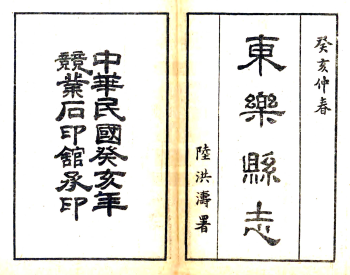 癸亥仲春
東樂縣志
陸洪濤署
中華民國癸亥年
競業石印館承印